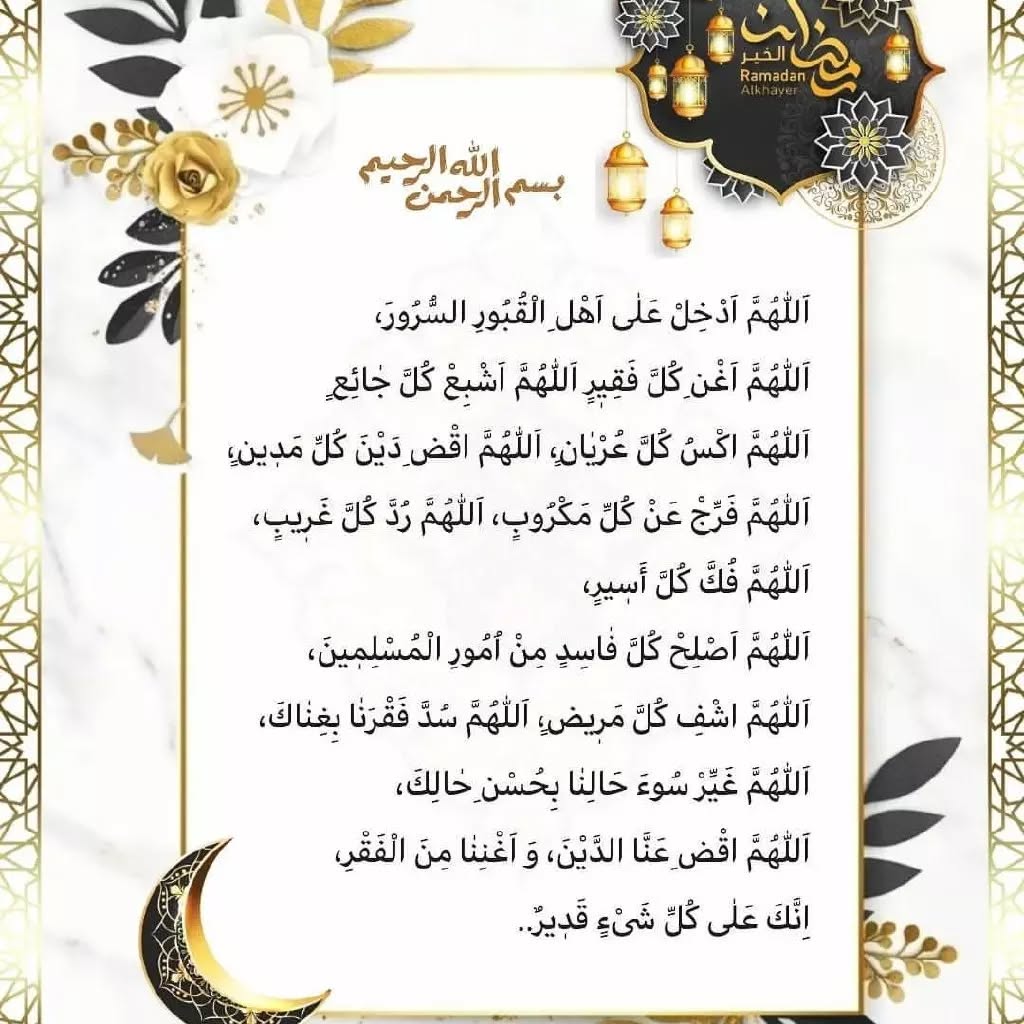 رمضان
الخير
Ramadan
Alkhayer
بسم الله الرحمن الرحیم
اَللّٰهُمَّ اَدْخِلْ عَلٰى اَهْلِ الْقُبُورِ السُّرُورَ،
اَللّٰهُمَّ اَغْنِ كُلَّ فَقِيرٍ اَللّٰهُمَّ اَشْبِعْ كُلَّ جٰائِعٍ
اَللّٰهُمَّ اكْسُ كُلَّ عُرْيٰانٍ، اَللّٰهُمَّ اقْضِ دَيْنَ كُلِّ مَدِينٍ،
اَللّٰهُمَّ فَرِّجْ عَنْ كُلِّ مَكْرُوبٍ، اَللّٰهُمَّ رُدَّ كُلَّ غَرِيبٍ،
اَللّٰهُمَّ فُكَّ كُلَّ أَسِيرٍ،
اَللّٰهُمَّ اَصْلِحْ كُلَّ فٰاسِدٍ مِنْ اُمُورِ الْمُسْلِمِينَ،
اَللّٰهُمَّ اشْفِ كُلَّ مَرِيضٍ، اَللّٰهُمَّ سُدَّ فَقْرَنٰا بِغِنٰاكَ،
اَللّٰهُمَّ غَيِّرْ سُوءَ حَالِنٰا بِحُسْنِ حٰالِكَ،
اَللّٰهُمَّ اقْضِ عَنَّا الدَّيْنَ، وَ اَغْنِنٰا مِنَ الْفَقْرِ،
اِنَّكَ عَلٰى كُلِّ شَىْءٍ قَدِيرٌ..